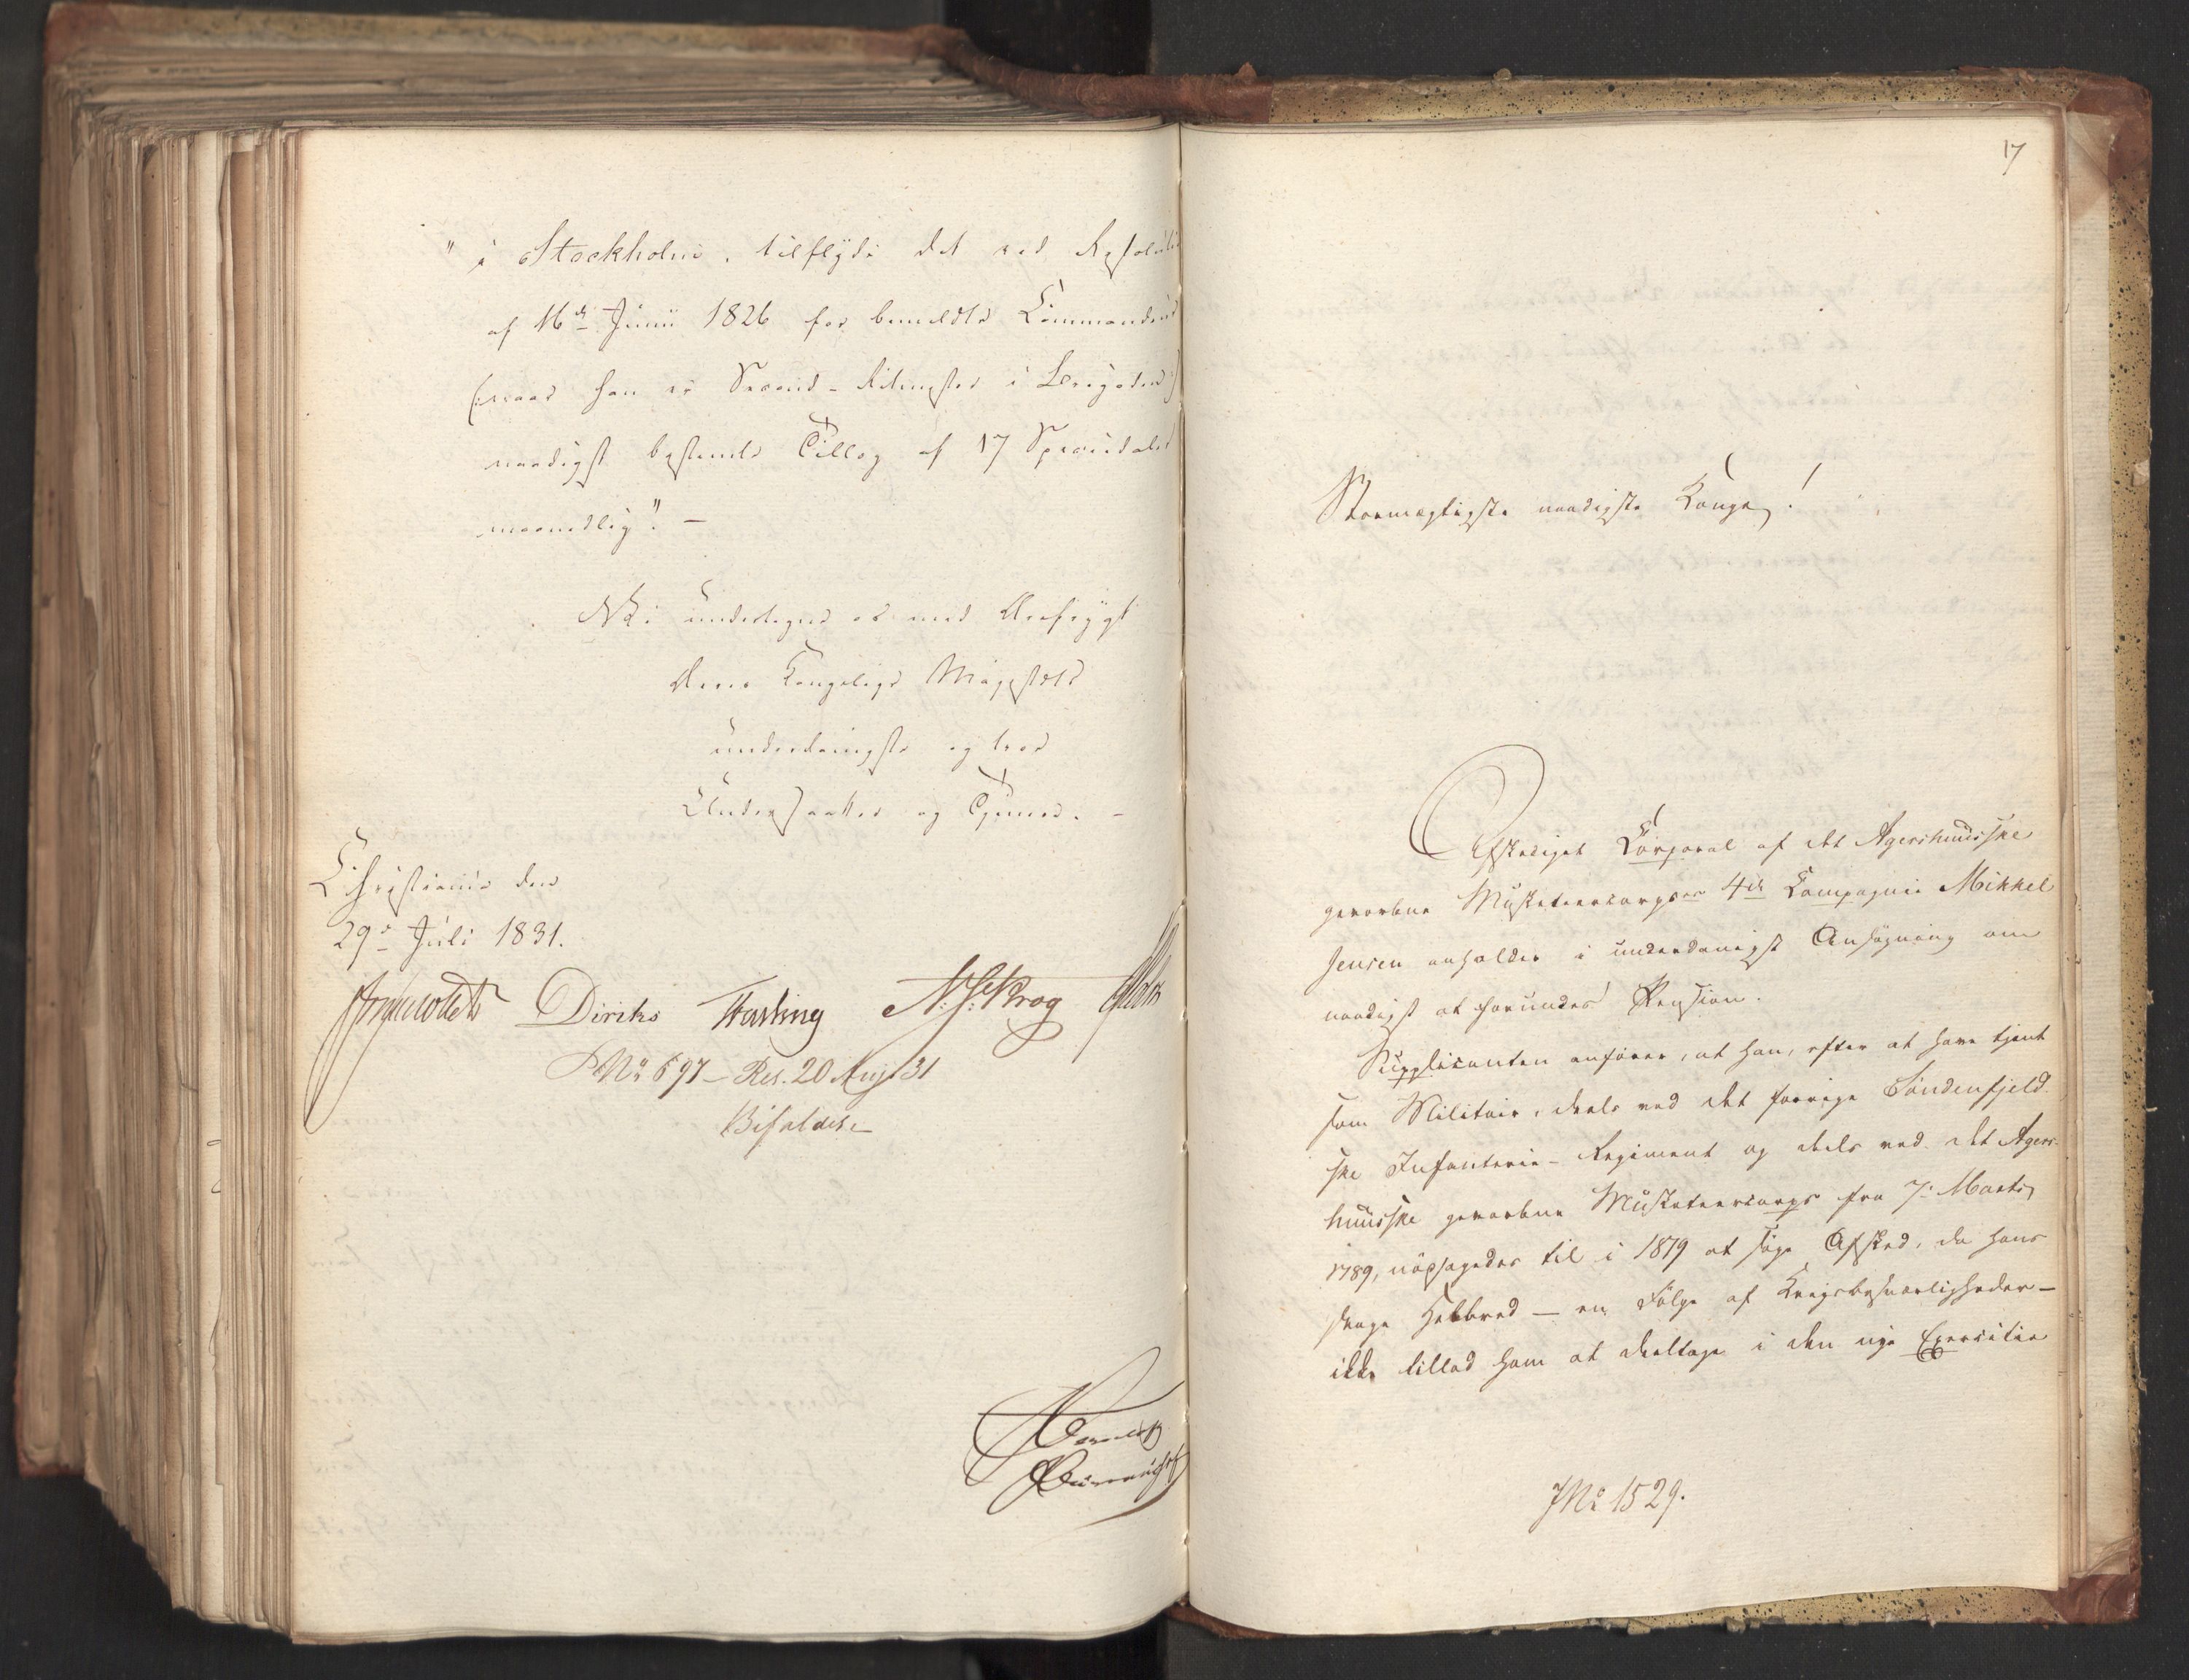 " i Stockholm, tilflyde det ved Resolution
af 16de Junii 1826 for bemeldte Commandeur
(:naar han er Second-Ritmester i Brigaden:)
naadigst bestemte Tillæg af 17 Speciedaler
maanedlig". —
Vi undertegne os med Ærefrygt
Deres Kongelige Majestæts
underdanigste og troe
Undersaatter og Tjenere. –
Christiania den
29de Juli 1831.
Diriks Fasting N. J. Krog
No 697 – Res. 20 Aug 31
Bifaldes.–
17
Stormægtigste naadigste Konge!
Afskediget Corporal af det Agershuusiske
gevorbne Musketeercorpses 4de Compagnie Mikkel
Jensen anholder i underdanigst Ansøgning om
naadigst at forundes Pension.
Supplicanten anfører, at han, efter at have tjent
som Militair, deels ved det forrige Søndenfjeld-
ske Infanterie-Regiment og deels ved det Agers-
huusiske gevorbne Musketeercorps fra 7de Marts
1789, nødsagedes til i 1819 at søge Afsked, da hans
svage Helbred — en Følge af Krigsbesværligheder —
ikke tillod ham at deeltage i den nye Exercitie
JNo 1529.